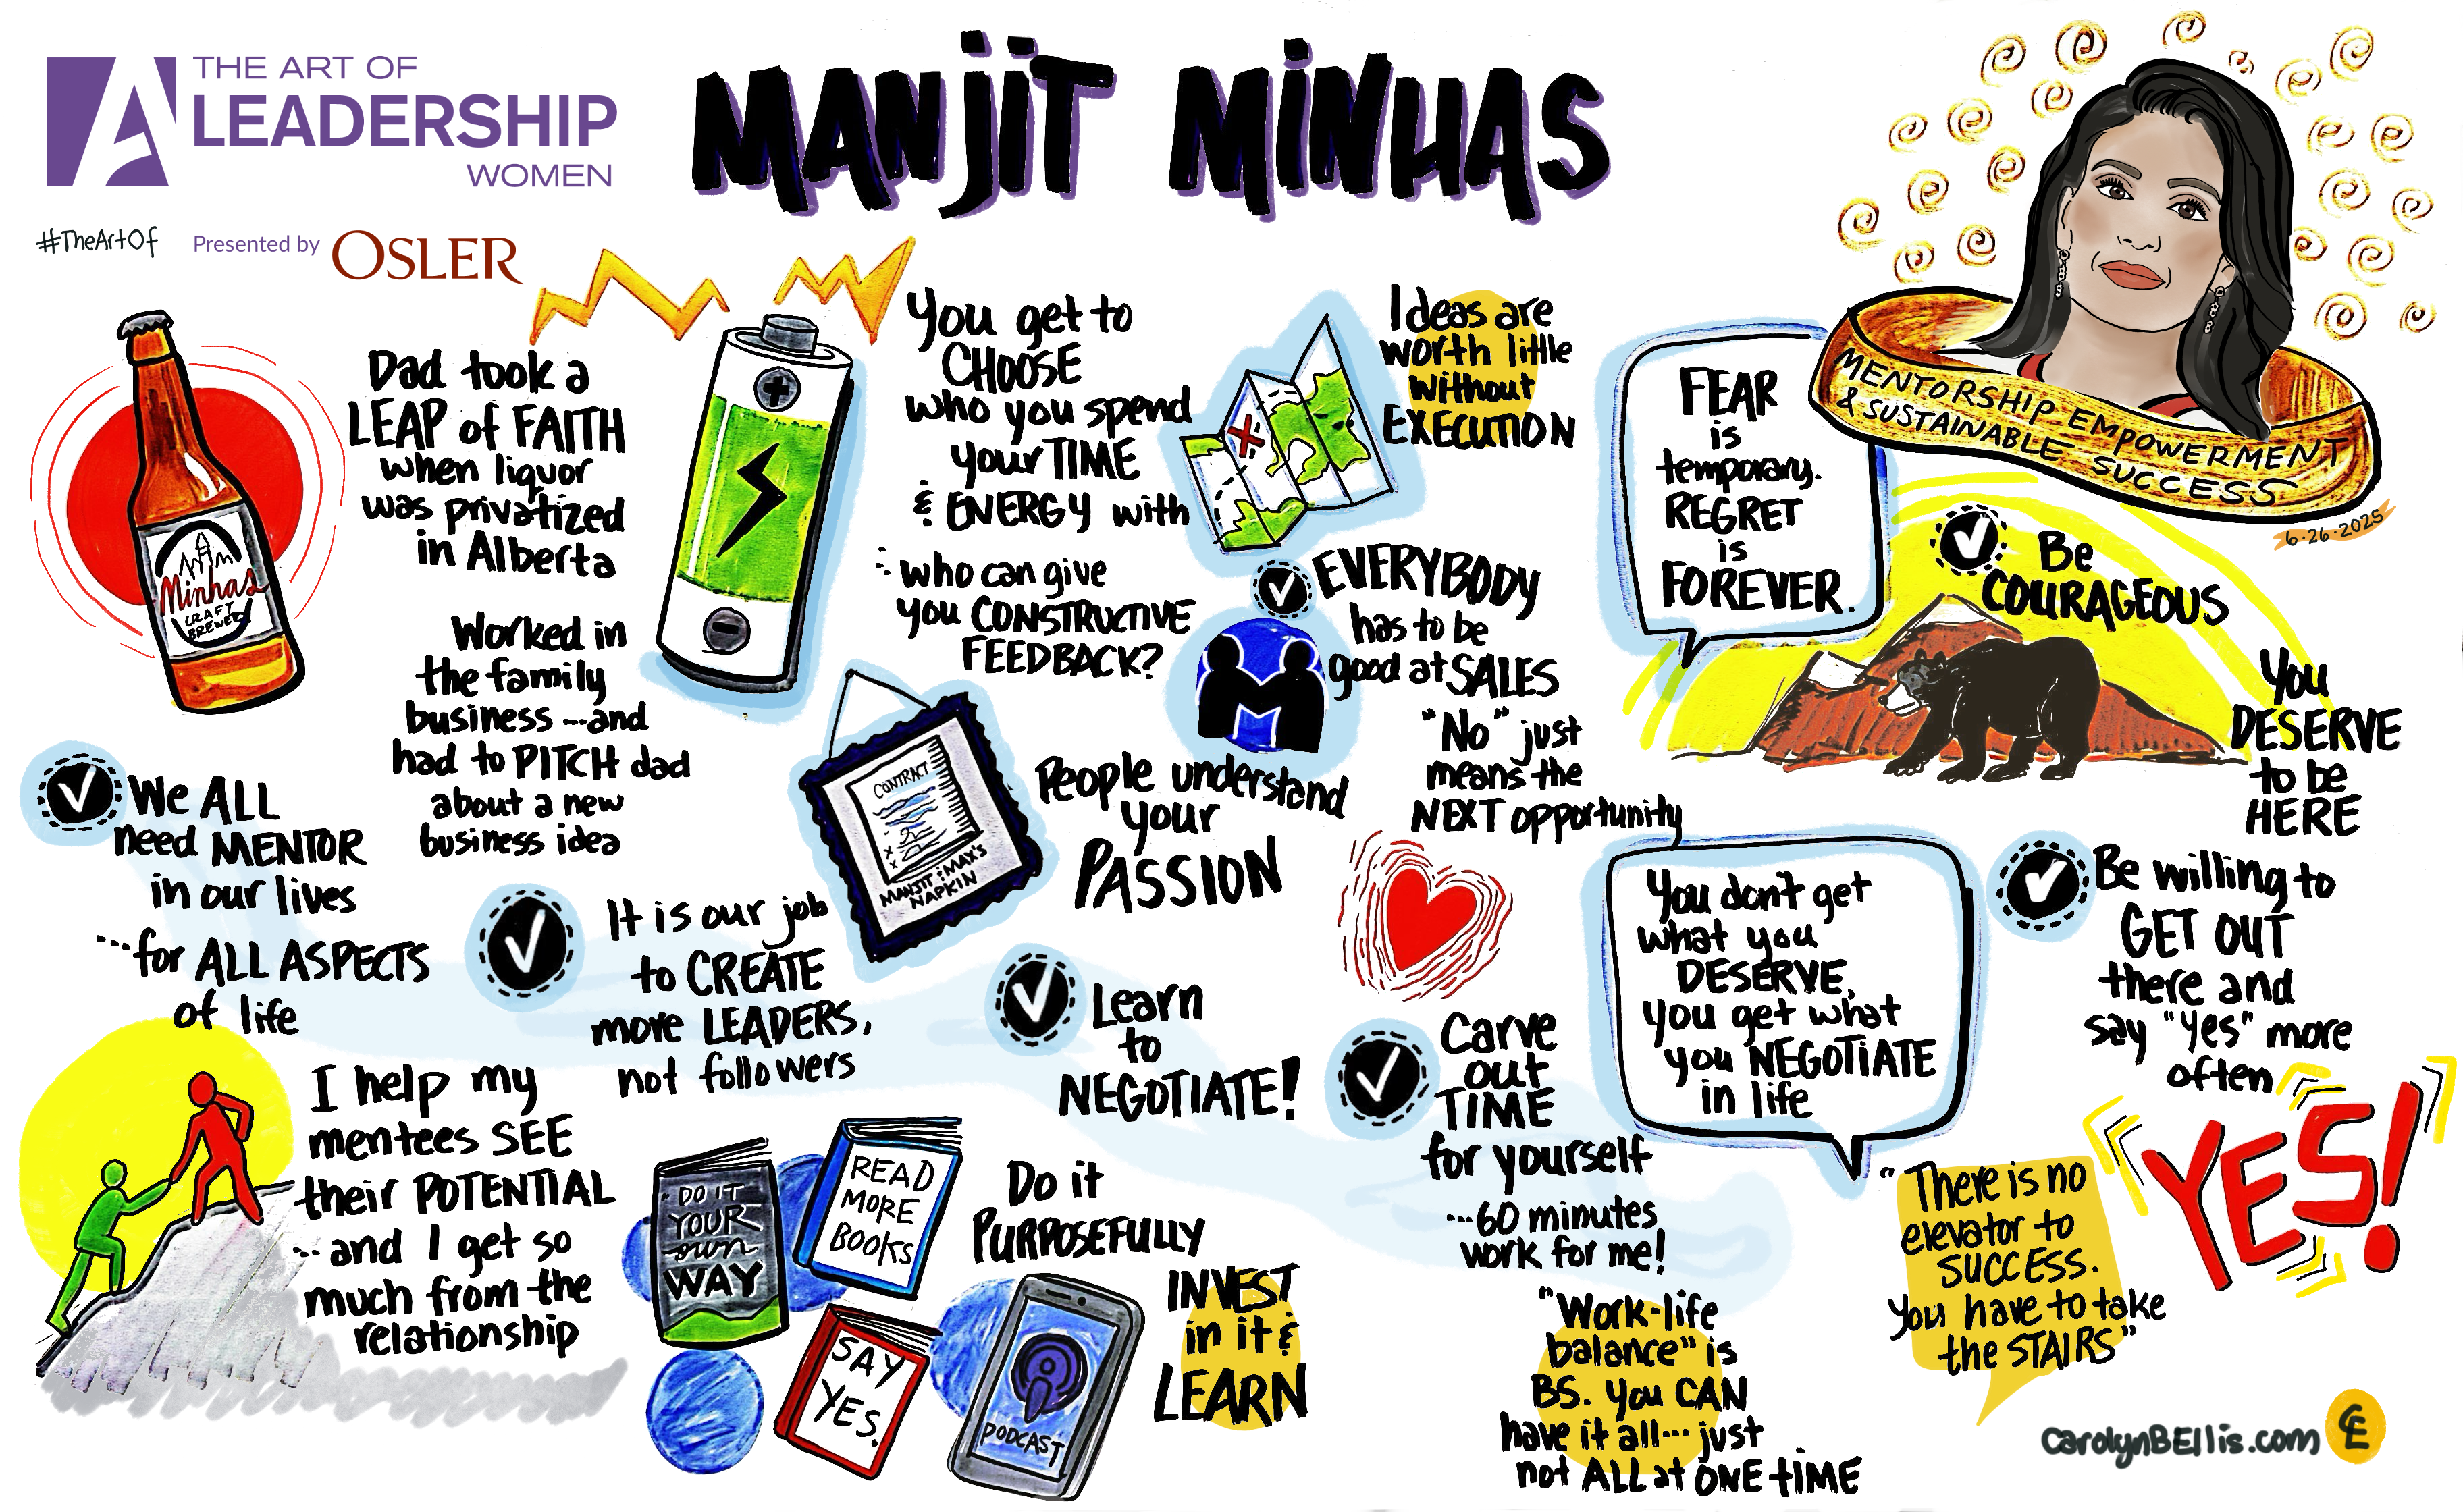 THE ART OF
LEADERSHIP
WOMEN
#TheArtOf
Presented by OSLER
MANJIT MINHAS
MENTORSHIP EMPOWERMENT
& SUSTAINABLE SUCCESS
6.26.2025
Minhas
CRAFT
BREWERY
Dad took a
LEAP of FAITH
when liquor
was privatized
in Alberta
Worked in
the family
business ...and
had to PITCH dad
about a new
business idea
We ALL
need MENTOR
in our lives
...for ALL ASPECTS
of life
I help my
mentees SEE
their POTENTIAL
... and I get so
much from the
relationship
You get to
CHOOSE
who you spend
your TIME
& ENERGY with
who can give
you CONSTRUCTIVE
FEEDBACK?
CONTRACT
MANJIT & MAX'S
NAPKIN
It is our job
to CREATE
more LEADERS,
not followers
DO IT
YOUR
own
WAY
READ
MORE
BOOKS
SAY
YES.
PODCAST
Do it
PURPOSEFULLY
INVEST
in it &
LEARN
Ideas are
worth little
without
EXECUTION
EVERYBODY
has to be
good at SALES
"No" just
means the
NEXT opportunity
People understand
your
PASSION
Learn
to
NEGOTIATE!
Carve
out
TIME
for yourself
...60 minutes
work for me!
"Work-life
balance" is
BS. You CAN
have it all... just
not ALL at ONE tiME
FEAR
is
temporary.
REGRET
is
FOREVER.
Be
COURAGEOUS
You
DESERVE
to be
HERE
You don't get
what you
DESERVE,
you get what
you NEGOTIATE
in life
Be willing to
GET OUT
there and
say "yes" more
often
YES!
"There is no
elevator to
SUCCESS.
You have to take
the STAIRS"
carolynBEllis.com
CE